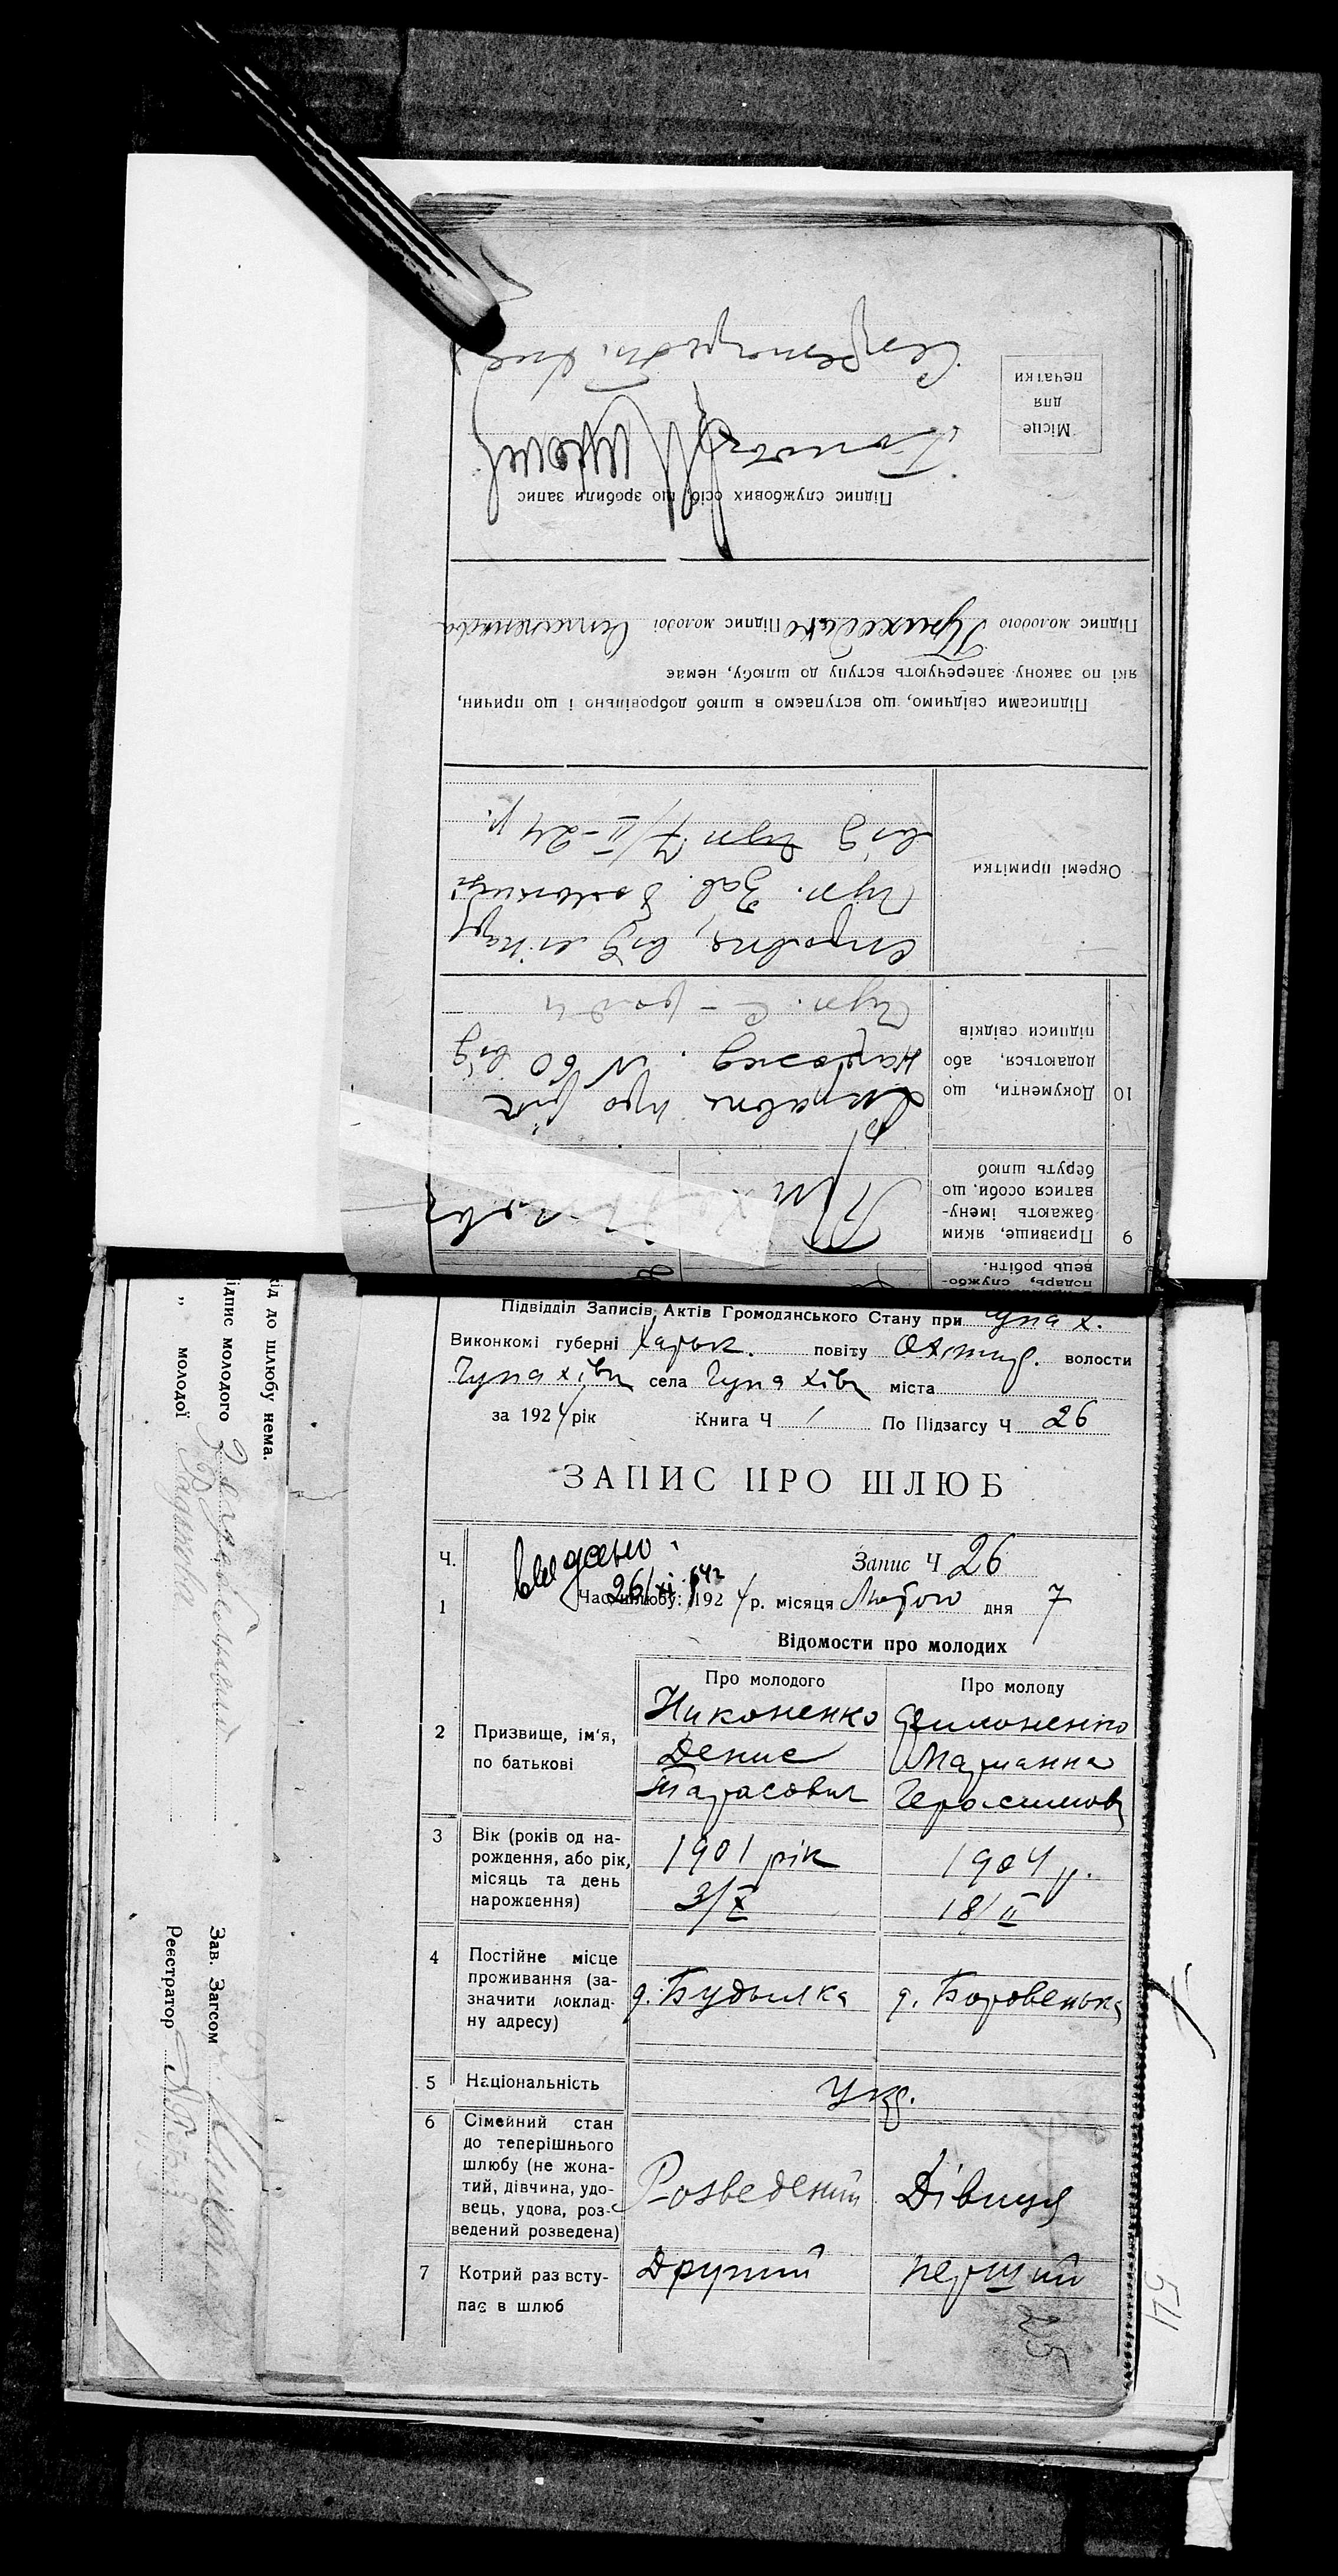 Підвідділ Записів Актів Громодянського Стану при Чупах.
Виконкомі губерні Харьк. повіту Охтир. волости
Чупахівка села Чупахівка міста
за 1924 рік Книга Ч 1 По Підзагсу Ч 26
ЗАПИС ПРО ШЛЮБ
Ч. Видано Запис Ч 26
26/XI 642
1 Час шлюбу: 1924 р. місяця Лютого дня 7
Відомости про молодих
Про молодого Про молоду
2 Призвище, ім'я, по батькові
Никоненко Филоненко
Денис Марианна
Тарасович Герасимов
3 Вік (років од на-
рождення, або рік,
місяць та день
нарождення)
1901 рік 1904 р.
3/X 18/II
4 Постійне місце
проживання (за-
значити доклад-
ну адресу)
д. Будылка д. Боровенька
5 Національність Укр.
6 Сімейний стан
до теперішнього
шлюбу (не жона-
тий, дівчина, удо-
вець, удова, роз-
ведений розведена)
Розведений Дівиця
7 Котрий раз всту-
пає в шлюб
Другий перший
25
54
подарь, службо-
вець робітн.
9 Призвище, яким
бажають імену-
ватися особи, що
беруть шлюб
10 Документи, що
додаються, або
підписи свідків
Справка про рік
нарожд. N 60 від
Чуп. С-ради
Окремі примітки
справка, від лікар
Чуп. Зав. больниці
від 7/II-24 р.
Підписами свідчимо, що вступаємо в шлюб добровільно і що причин,
які по закону заперечують вступу до шлюбу, немає
Підпис молодого Підпис молодої
Підпис службових осіб, що зробили запис
Голова
Секретарь
Місце
для
печатки
хід до шлюбу нема.
ідпис молодого
„ молодої
Зав. Загсом
Реєстратор